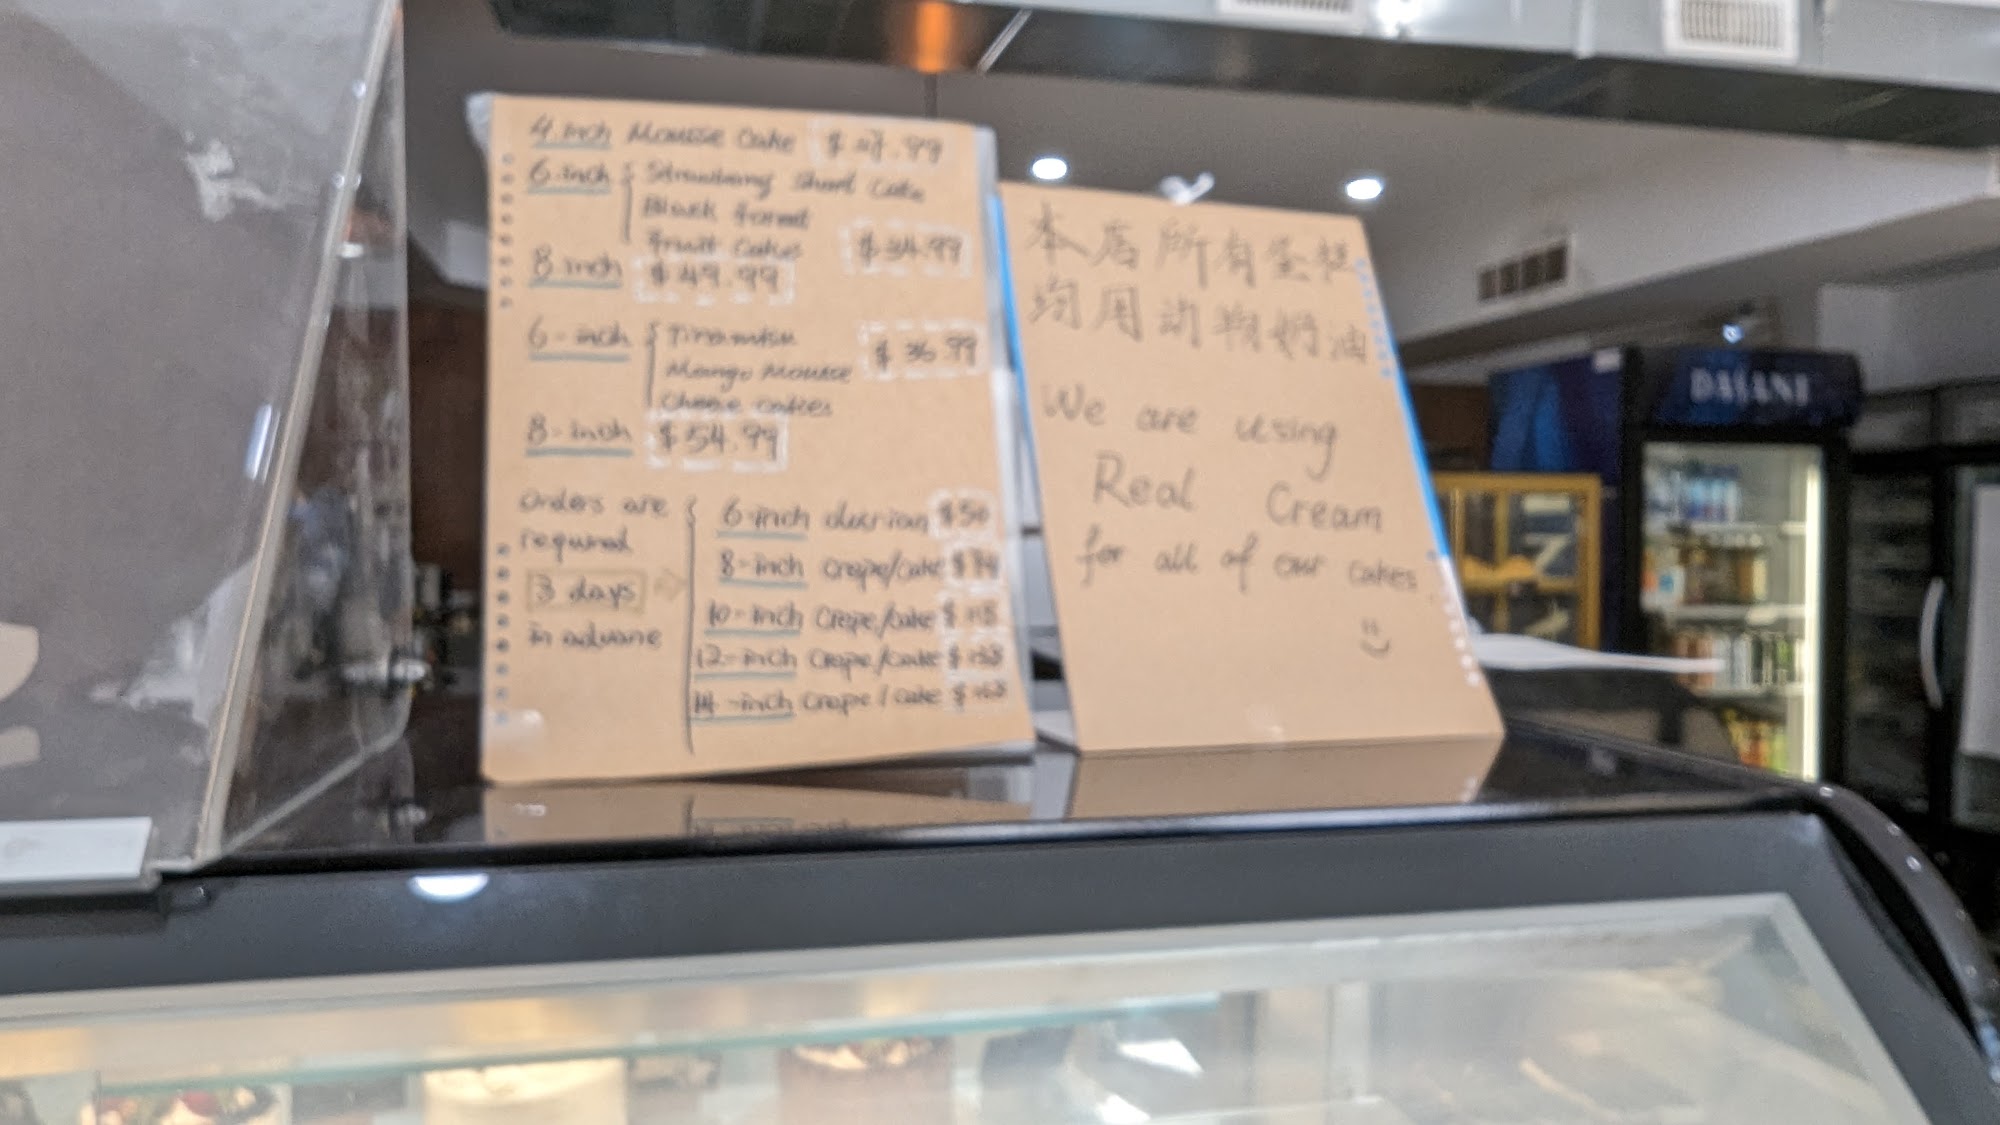 4 inch Mousse Cake
6-inch { Strawberry Short Cake
Black forest
Fruit Cakes $34.99
8 inch $49.99
6-inch { Tiramisu
Mango Mousse $36.99
Cheese cakes
8-inch $54.99
Orders are
required
3 days
in advane
6-inch durian $50
8-inch Crepe/cake
10-inch Crepe/cake
12-inch Crepe/cake
14-inch Crepe/cake
本店所有蛋糕
均用动物奶油
We are using
Real Cream
for all of our cakes.
DASANI